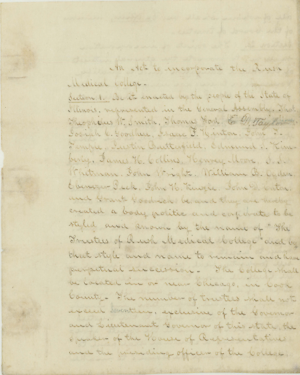 An Act to incorporate the Rush
Medical College.
Section 1. Be it enacted by the People of the State of
Illinois, represented in the General Assembly, That
Theophilus W. Smith, Thomas
Josiah C. Goodhue, Isaac T. Hinton, John T.
Justin Butterfield, Edmund S. Kim-
berly, James H. Collins,
Whitman, John Wright, William B. Ogden
Ebenezer Peck, John H. Kinzie, John
and Grant Goodrich be and they are hereby
created a body politic and corporate to be
styled and known by the name of "The
Trustees of Rush Medical College" and by
that style and name to remain and have
perpetual succession. The College shall
be located in or near Chicago, in Cook
County. The number of trustees shall not
exceed seventeen, exclusive of the Governor
and Lieutenant Governor of this State, the
Speaker of the House of Representatives,
and the presiding officer of the College.